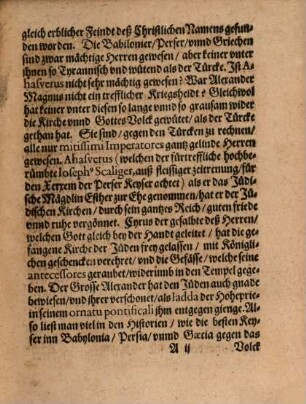 gleich erblicher Feindt deß Christlichen Namens gefun⸗
den worden. Die Babilonier/Perser/vnnd Griechen
sind zwar mächtige Herren gewesen/aber keiner vnter
ihnen so Tyrannisch vnd wütend als der Türcke. Ist A⸗
hasverus nicht sehr mächtig gewesen? War Alexander
Magnus nicht ein trefflicher Kriegsheldt? Gleichwol
hat keiner vnter diesen so lange vnnd so grausam wider
die Kirche vnnd Gottes Volck gewütet/als der Türck
gethan hat. Sie sind/gegen den Türcken zu rechnen/
alle nur mitissimi Imperatores gantz gelinde Herren
gewesen. Ahasverus (welchen der fürtreffliche hochbe⸗
rümbte Josephꝰ Scaliger, auß fleissiger zeitreitung/für
den Xerxem der Perser Keyser achtet) als er das Jüdi⸗
sche Mägdlin Esther zur Ehe genommen/hat er der Jü⸗
dischen Kirchen/durch sein gantzes Reich/guten friede
vnnd ruhe vergönnet. Cyrus der gesalbte deß Herren/
welchen Gott gleich bey der Handt geleitet/hat die ge⸗
fangene Kirche der Jüden frey gelassen/mit Königli⸗
chen geschencken verehret/vnd die Gefässe/welche seine
antecessores geraubet/widerumb in den Tempel gege⸗
ben. Der Grosse Alexander hat den Jüden auch gnade
bewiesen/vnd ihrer verschonet/als Iadda der Hoheprie⸗
in seinem ornatu pontificali jhm entgegen gienge. Al⸗
so liest man viel in den Historien/wie die besten Key⸗
ser inn Babylonia/Persia/vnnd Græcia gegen das
A ij Volck